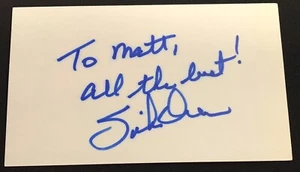 To Matt,
all the best!